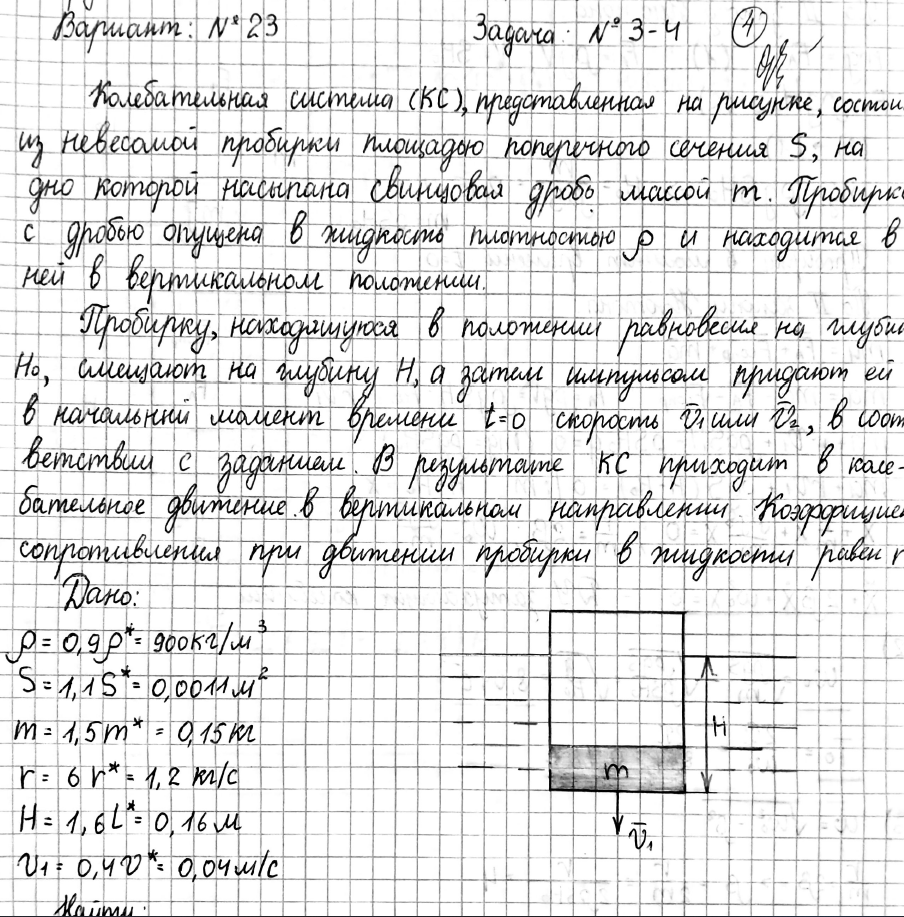 Вариант: №23 Задача: №3-4 4
Колебательная система (КС), представленная на рисунке, состои
из невесомой пробирки площадью поперечного сечения S, на
дно которой насыпана свинцовая дробь массой m. Пробирка
с дробью опущена в жидкость плотностью ρ и находится в
ней в вертикальном положении.
Пробирку, находящуюся в положении равновесия на глуби
H₀, смещают на глубину H, а затем импульсом придают ей
в начальный момент времени t=0 скорость v̄₁ или v̄₂, в соот
ветствии с заданием. В результате КС приходит в коле-
бательное движение в вертикальном направлении Коэффицие
сопротивления при движении пробирки в жидкости равен r
Дано:
ρ = 0,9ρ* = 900кг/м³
S = 1,1S* = 0,0011м²
m = 1,5m* = 0,15кг
r = 6r* = 1,2 кг/с
H = 1,6L* = 0,16м
v₁ = 0,4v* = 0,04м/с
H
m
v̄₁
Найти: